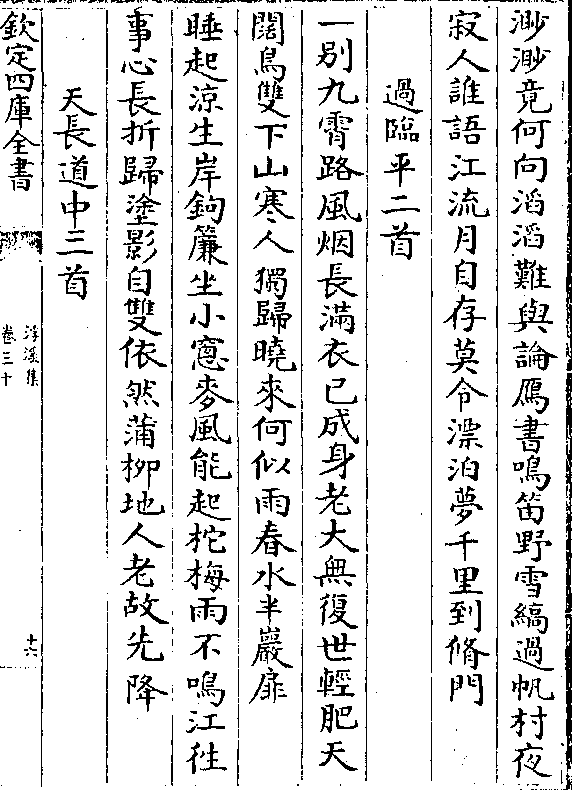 渺渺竟何向滔滔難與論鴈書鳴笛野雪縞過帆村夜
寂人誰語江流月自存莫令漂泊夢千里到脩門
過臨平二首
一别九霄路風烟長滿衣已成身老大無復世輕肥天
闊鳥雙下山寒人獨歸曉來何似雨春水半巖扉
睡起涼生岸鉤簾坐小窻麥風能起柁梅雨不鳴江徃
事心長折歸塗影自雙依然蒲栁地人老故先降
天長道中三首
欽定四庫全書
浮溪集
卷三十
十六